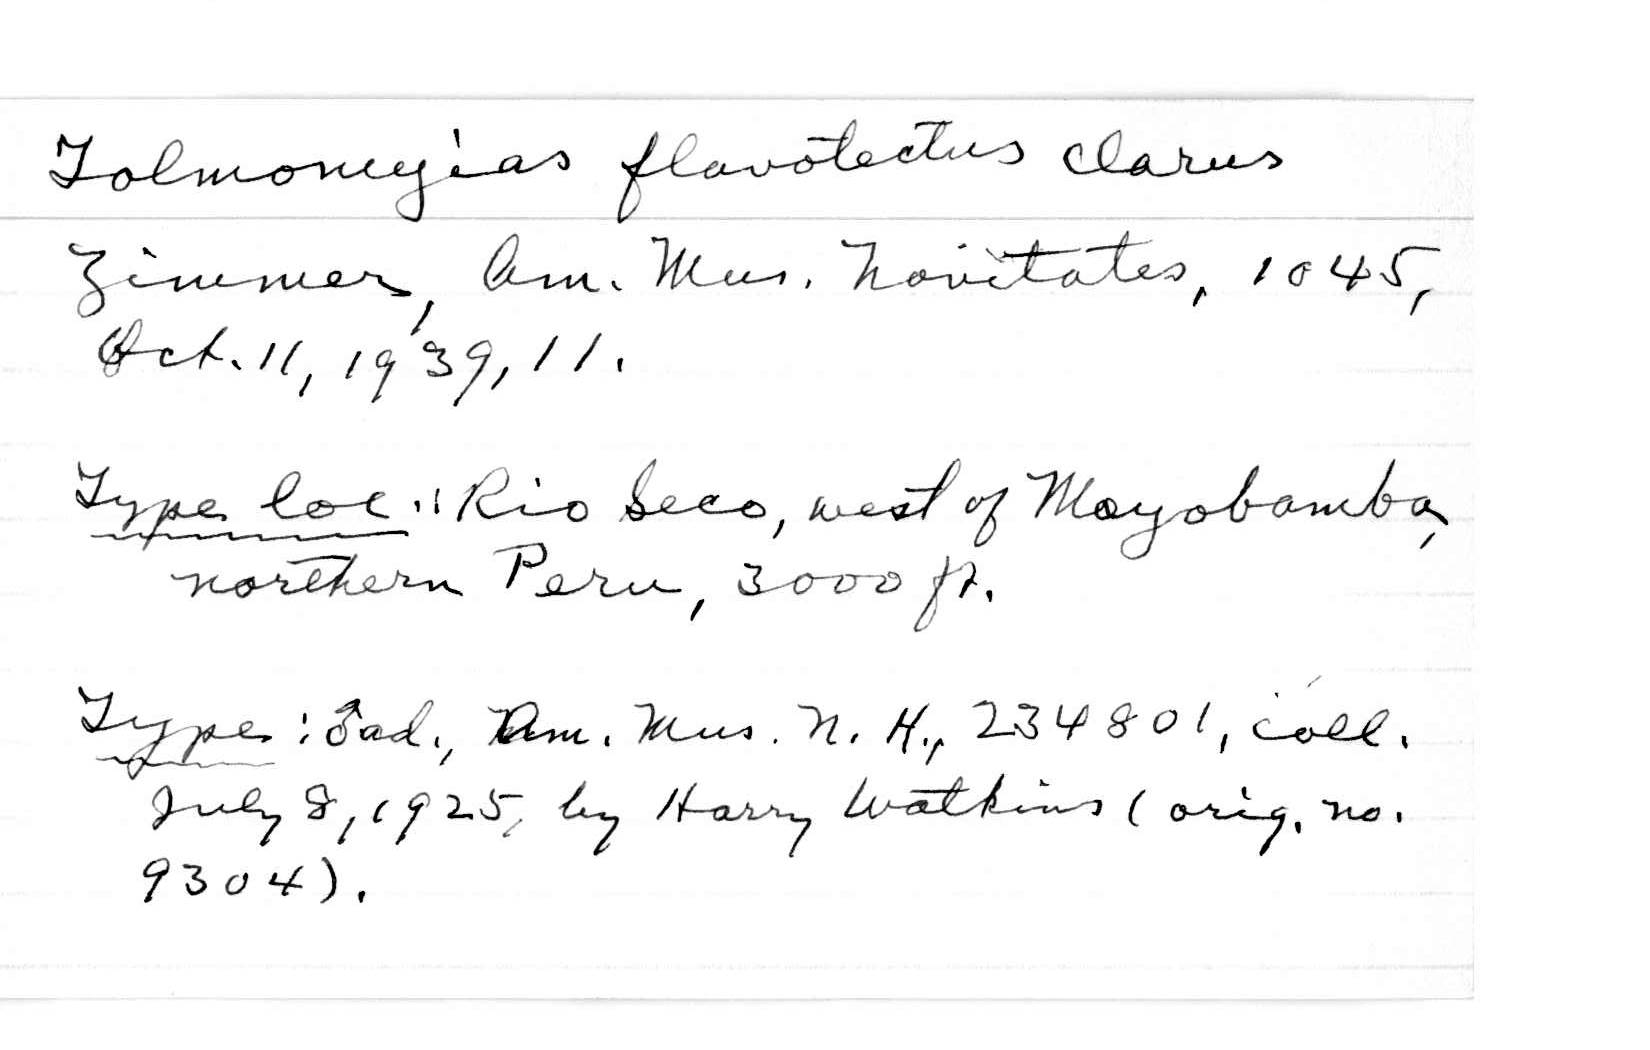 Tolmomyias flavotectus clarus
Zimmer, Am. Mus. Novitates, 1045,
Oct. 11, 1939, 11.
Type loc.: Rio Seco, west of Moyobamba,
northern Peru, 3000 ft.
Type: ♂ad., Am. Mus. N. H., 234801, coll.
July 8, 1925, by Harry Watkins (orig. no.
9304).